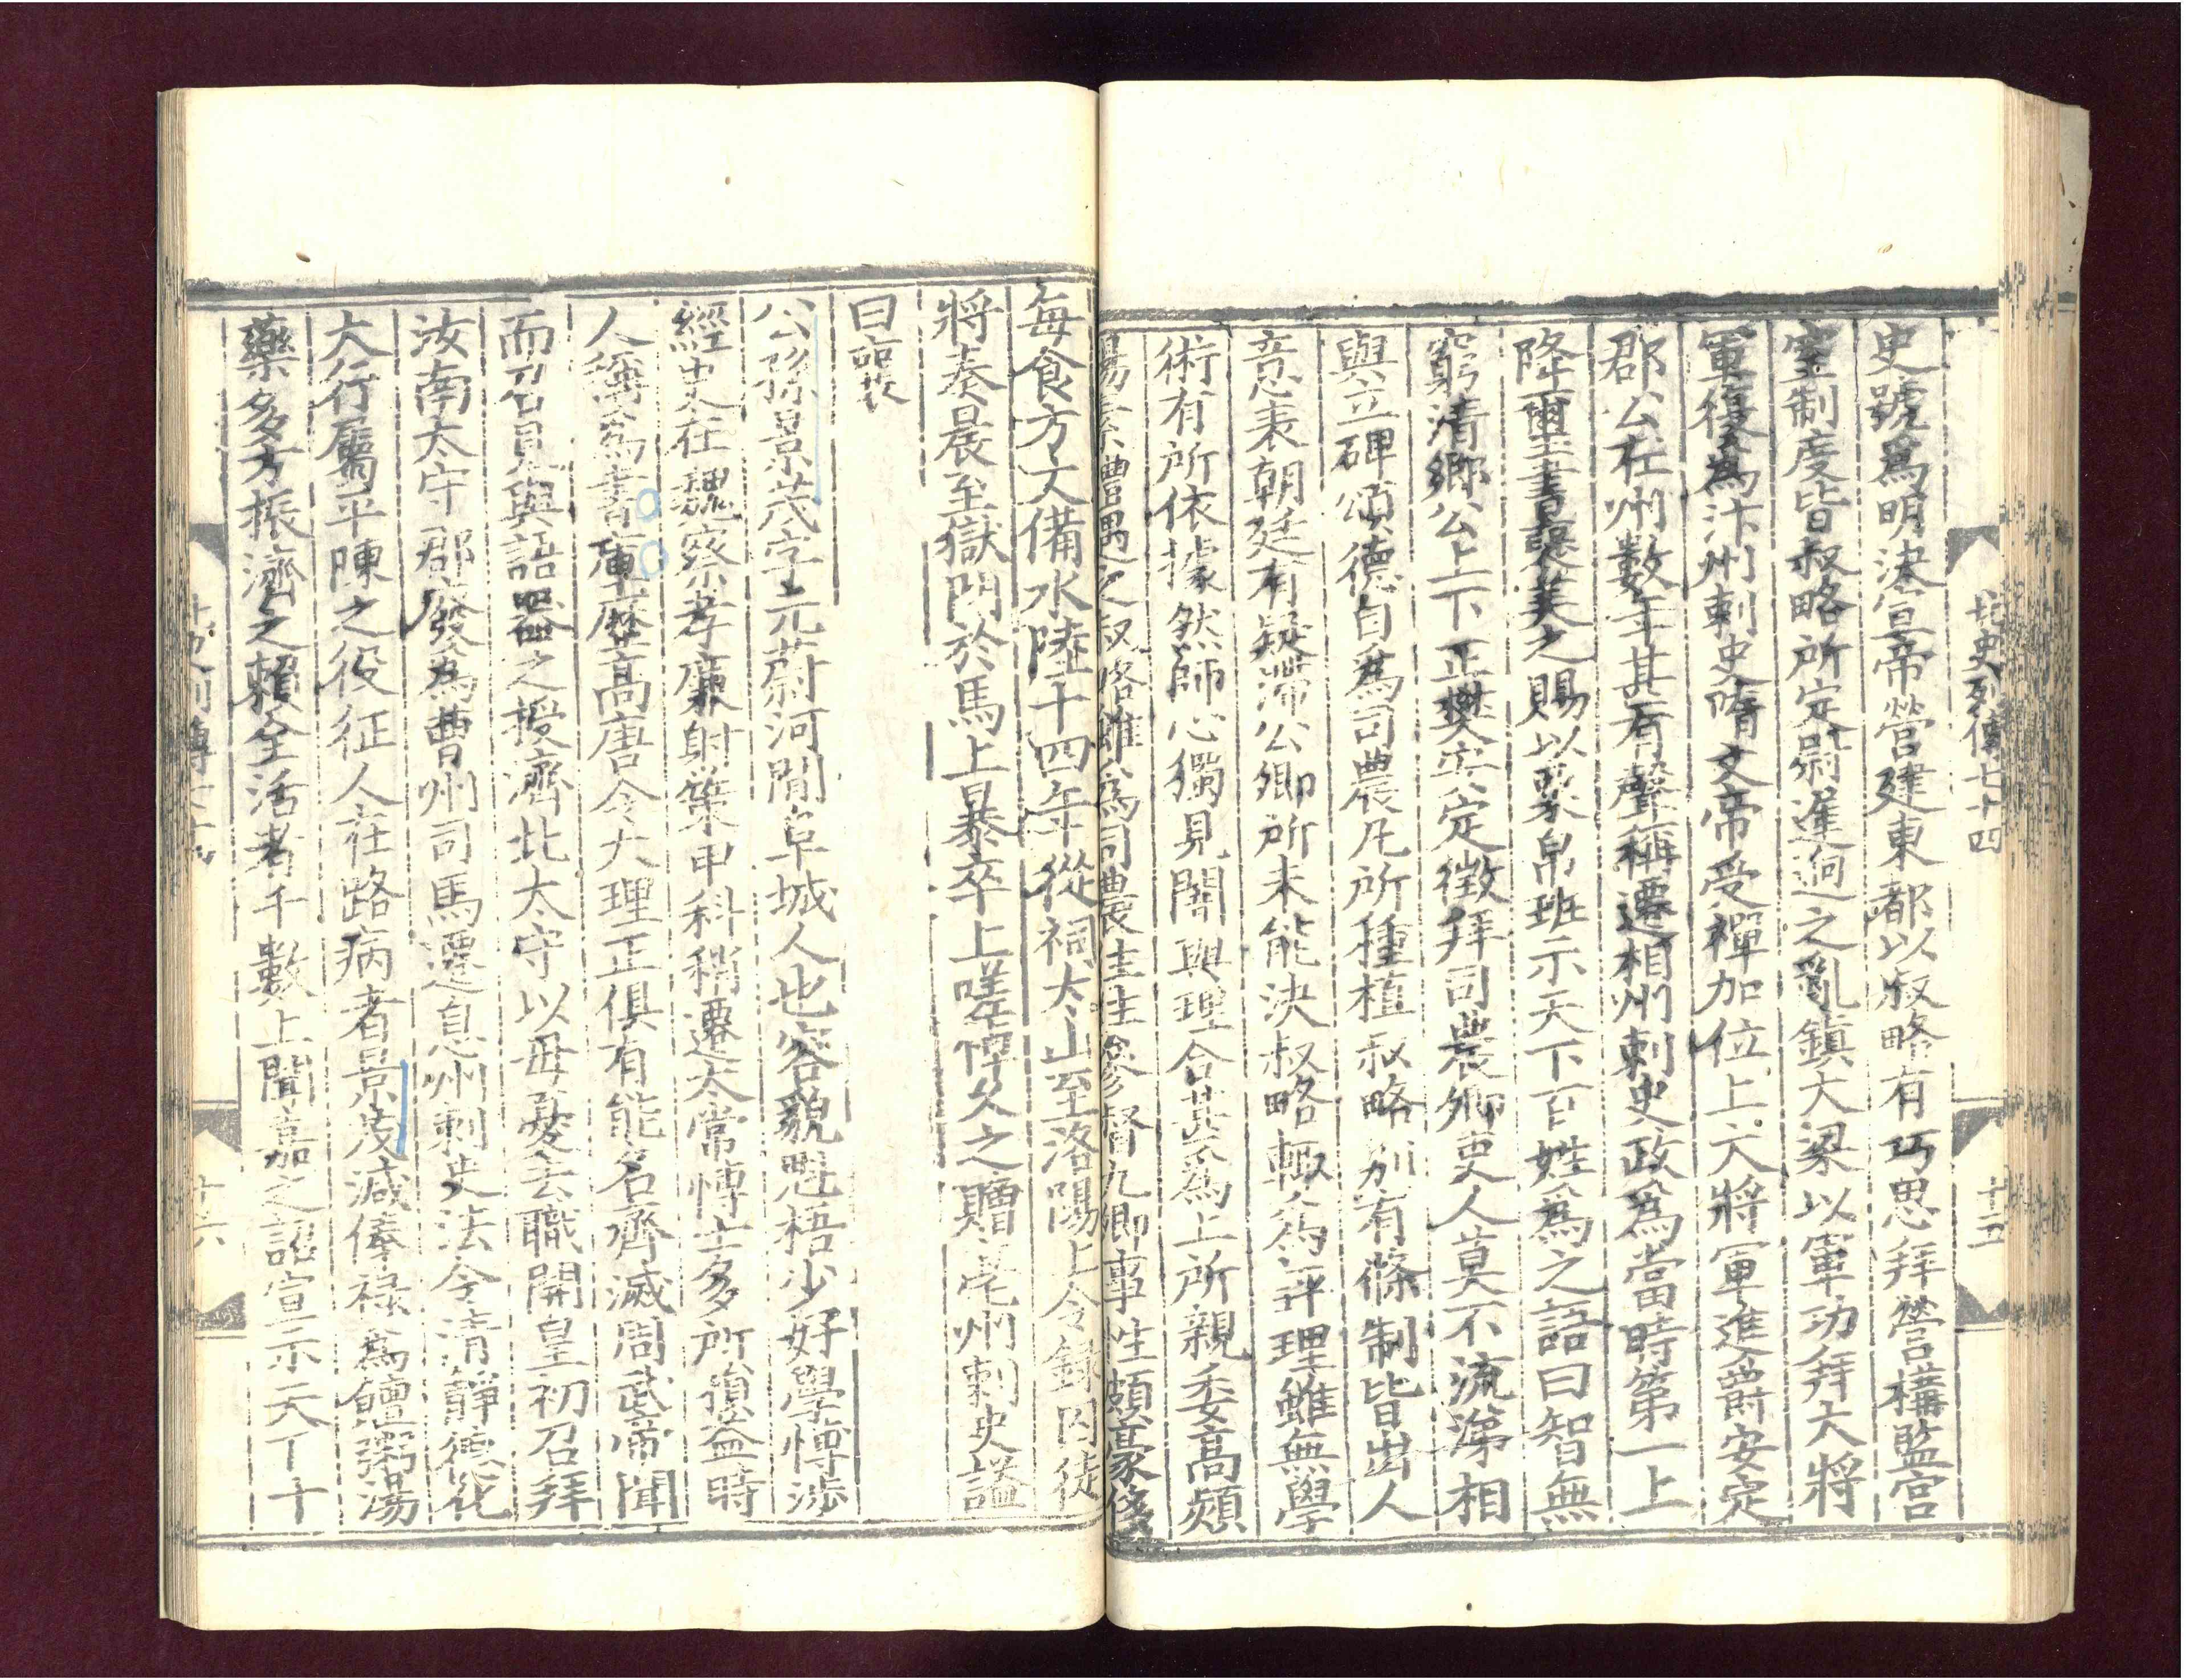 北史列傳七十四
十五
史號爲明決宣帝營建東都以叔略有巧思拜營構監宮
室制度皆叔略所定尉遲迥之亂鎮大梁以軍功拜大將
軍復爲汴州刺史隋文帝受禪加位上大將軍進爵安定
郡公在州數年甚有聲稱遷相州刺史政爲當時第一上
降璽書褒美之賜以粟帛班示天下百姓爲之語曰智無
窮清鄉公上下正樊安定徵拜司農卿吏人莫不流涕相
與立碑頌德自爲司農凡所種植叔略別有條制皆出人
意表朝廷有疑滯公卿所未能決叔略輒爲評理雖無學
術有所依據然師心獨見闇與理合甚爲上所親委高熲
楊素禮遇之叔略雖爲司農往往參督九卿事性頗豪侈
每食方丈備水陸十四年從祠太山至洛陽上令錄囚徒
將奏晨至獄門於馬上暴卒上嗟悼久之贈亳州刺史謚
曰襄
公孫景茂字元蔚河間阜城人也容貌魁梧少好學博涉
經史在魏察孝廉射策甲科稍遷太常博士多所損益時
人稱爲書庫歷高唐令大理正俱有能名齊滅周武帝聞
而召見與語器之授濟北太守以母憂去職開皇初召拜
汝南太守郡廢爲曹州司馬遷息州刺史法令清靜德化
大行屬平陳之役征人在路病者景茂減俸祿爲饘粥湯
藥多方振濟之賴全活者千數上聞嘉之詔宣示天下十
十六